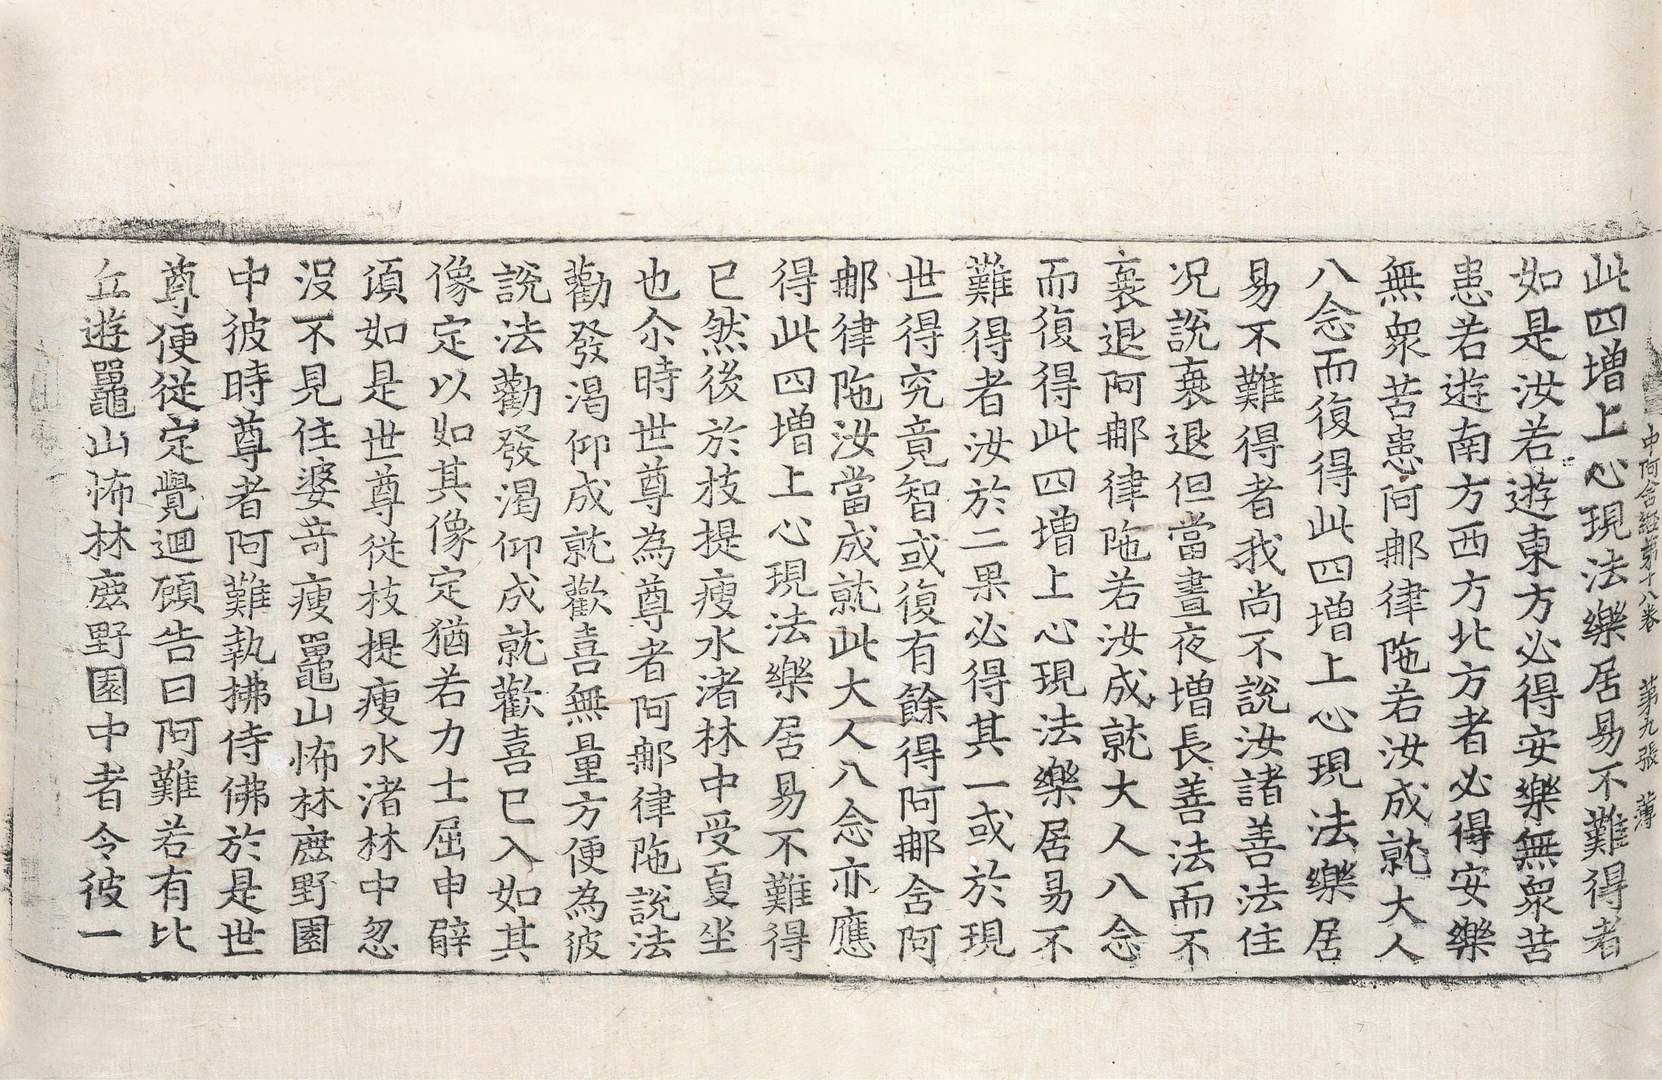 中阿含經第十八卷　第九張　薄
此四增上心現法樂居易不難得者
如是汝若遊東方必得安樂無衆苦
患若遊南方西方北方者必得安樂
無衆苦患阿那律陁若汝成就大人
八念而復得此四增上心現法樂居
易不難得者我尚不說汝諸善法住
况說衰退但當晝夜增長善法而不
衰退阿那律陁若汝成就大人八念
而復得此四增上心現法樂居易不
難得者汝於二果必得其一或於現
世得究竟智或復有餘得阿那含阿
那律陁汝當成就此大人八念亦應
得此四增上心現法樂居易不難得
已然後於枝提瘦水渚林中受夏坐
也尒時世尊為尊者阿那律陁說法
勸發渴仰成就歡喜無量方便為彼
說法勸發渴仰成就歡喜已入如其
像定以如其像定猶若力士屈申臂
頃如是世尊從枝提瘦水渚林中忽
没不見住婆奇瘦鼉山怖林鹿野園
中彼時尊者阿難執拂侍佛於是世
尊便從定覺迴顧告曰阿難若有比
丘遊鼉山怖林鹿野園中者令彼一